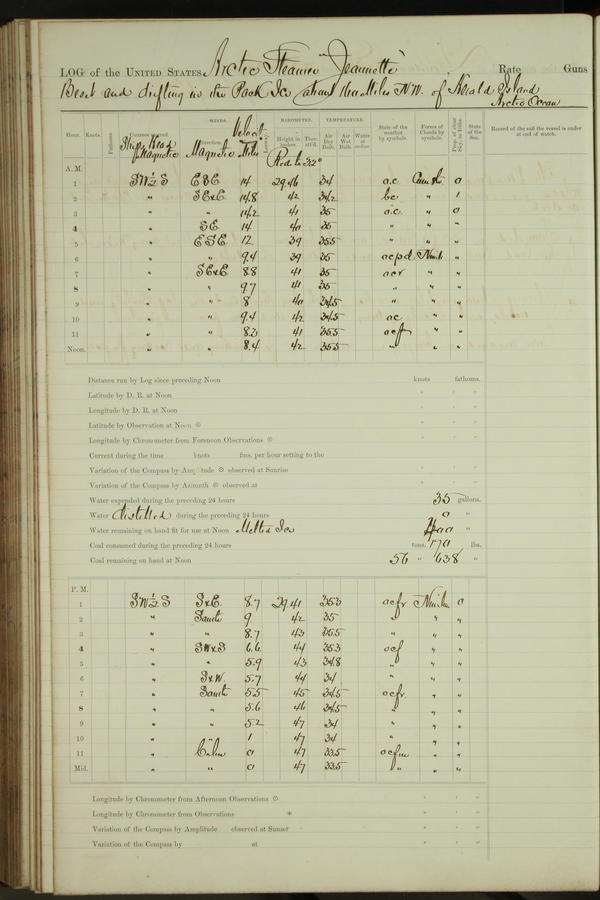 LOG of the UNITED STATES Arctic Steamer "Jeannette" Rate Guns
Beset and drifting in the Pack Ice about Miles N.W. of Herald Island
Arctic Ocean
WINDS. BAROMETER. TEMPERATURE.
Hour. Knots. Fathoms. Courses steered. Direction. Velocity Height in inches. Ther. att'd. Air Dry Bulb. Air Wet Bulb. Water at surface. State of the weather by symbols. Forms of Clouds by symbols. Prop. of clear Sky, in 10ths. State of the Sea. Record of the sail the vessel is under at end of watch.
Ship's Head Magnetic Magnetic Miles Red. to 32°
A. M.
1 SW ½ S ESE 14 29.46 34 o.c. Cum Str 0
2 " SExE 14.8 42 34.2 bc " 1
3 " " 14.2 41 35 o.c. " 0
4 " SE 14 40 35 " " "
5 " ESE 12 39 35.5 " " "
6 " " 9.4 39 35 ocpd Nimb "
7 " SExE 8.8 41 35 ocr " "
8 " " 9.7 41 35 " " "
9 " " 8 40 34.5 " " "
10 " " 9.4 42 34.5 oc " "
11 " " 8.3 41 35.5 ocf " "
Noon. " " 8.4 42 35.5 " " "
Distance run by Log since preceding Noon knots fathoms.
Latitude by D. R. at Noon ° ' "
Longitude by D. R. at Noon ° ' "
Latitude by Observation at Noon ☉ ° ' "
Longitude by Chronometer from Forenoon Observations ☉ ° ' "
Current during the time knots fms. per hour setting to the
Variation of the Compass by Amplitude ☉ observed at Sunrise ° ' "
Variation of the Compass by Azimuth ☉ observed at ° ' "
Water expended during the preceding 24 hours 35 gallons.
Water distilled during the preceding 24 hours 0 "
Water remaining on hand fit for use at Noon Melted Ice "
Coal consumed during the preceding 24 hours tons. 170 lbs.
Coal remaining on hand at Noon 56 " 638 "
P. M.
1 SW ½ S SxE 8.7 29.41 35.3 ocfr Nimb 0
2 " South 9 42 35 " " "
3 " " 8.7 43 35.5 " " "
4 " SWxS 6.6 44 35.3 ocf " "
5 " " 5.9 43 34.8 " " "
6 " SxW 5.7 44 34 " " "
7 " South 5.5 45 34.5 ocfr " "
8 " " 5.6 46 34.5 " " "
9 " " 5.2 47 34 " " "
10 " " 1 47 34 " " "
11 " Calm 0 47 33.5 ocfm " "
Mid. " " 0 47 33.5 " " "
Longitude by Chronometer from Afternoon Observations ☉ ° ' "
Longitude by Chronometer from Observations * ° ' "
Variation of the Compass by Amplitude observed at Sunset ° ' "
Variation of the Compass by at ° ' "